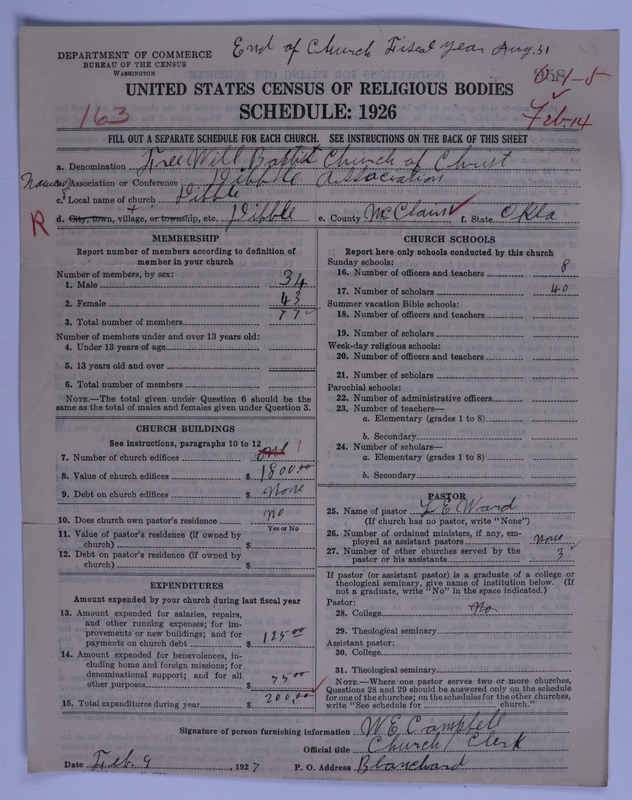 End of Church Fiscal year Aug. 31
DEPARTMENT OF COMMERCE
BUREAU OF THE CENSUS
WASHINGTON
UNITED STATES CENSUS OF RELIGIOUS BODIES
SCHEDULE: 1926
163
Feb-14
FILL OUT A SEPARATE SCHEDULE FOR EACH CHURCH. SEE INSTRUCTIONS ON THE BACK OF THIS SHEET
a. Denomination Free Will Baptist Church of Christ
Name of Association or Conference Dibble Association
c. Local name of church Dibble
R
d. City, town, village, or township, etc. Dibble e. County McClain f. State Okla
MEMBERSHIP
Report number of members according to definition of
member in your church
Number of members, by sex:
1. Male 34
2. Female 43
3. Total number of members 77
Number of members under and over 13 years old:
4. Under 13 years of age
5. 13 years old and over
6. Total number of members
NOTE.—The total given under Question 6 should be the
same as the total of males and females given under Question 3.
CHURCH BUILDINGS
See instructions, paragraphs 10 to 12
7. Number of church edifices one 1
8. Value of church edifices $ 1800.00
9. Debt on church edifices $ None
10. Does church own pastor's residence no
Yes or No
11. Value of pastor's residence (if owned by
church) $
12. Debt on pastor's residence (if owned by
church) $
EXPENDITURES
Amount expended by your church during last fiscal year
13. Amount expended for salaries, repairs,
and other running expenses; for im-
provements or new buildings; and for
payments on church debt $ 125.00
14. Amount expended for benevolences, in-
cluding home and foreign missions; for
denominational support; and for all
other purposes $ 75.00
15. Total expenditures during year $ 200.00
CHURCH SCHOOLS
Report here only schools conducted by this church
Sunday schools:
16. Number of officers and teachers 8
17. Number of scholars 40
Summer vacation Bible schools:
18. Number of officers and teachers
19. Number of scholars
Week-day religious schools:
20. Number of officers and teachers
21. Number of scholars
Parochial schools:
22. Number of administrative officers
23. Number of teachers—
a. Elementary (grades 1 to 8)
b. Secondary
24. Number of scholars—
a. Elementary (grades 1 to 8)
b. Secondary
PASTOR
25. Name of pastor L E Ward
(If church has no pastor, write "None")
26. Number of ordained ministers, if any, em-
ployed as assistant pastors None
27. Number of other churches served by the
pastor or his assistants 3
If pastor (or assistant pastor) is a graduate of a college or
theological seminary, give name of institution below. (If
not a graduate, write "No" in the space indicated.)
Pastor:
28. College No
29. Theological seminary
Assistant pastor:
30. College
31. Theological seminary
NOTE.—Where one pastor serves two or more churches,
Questions 28 and 29 should be answered only on the schedule
for one of the churches; on the schedules for the other churches,
write "See schedule for church."
Signature of person furnishing information W E Campbell
Official title Church Clerk
Date Feb. 9, 1927 P. O. Address Blanchard